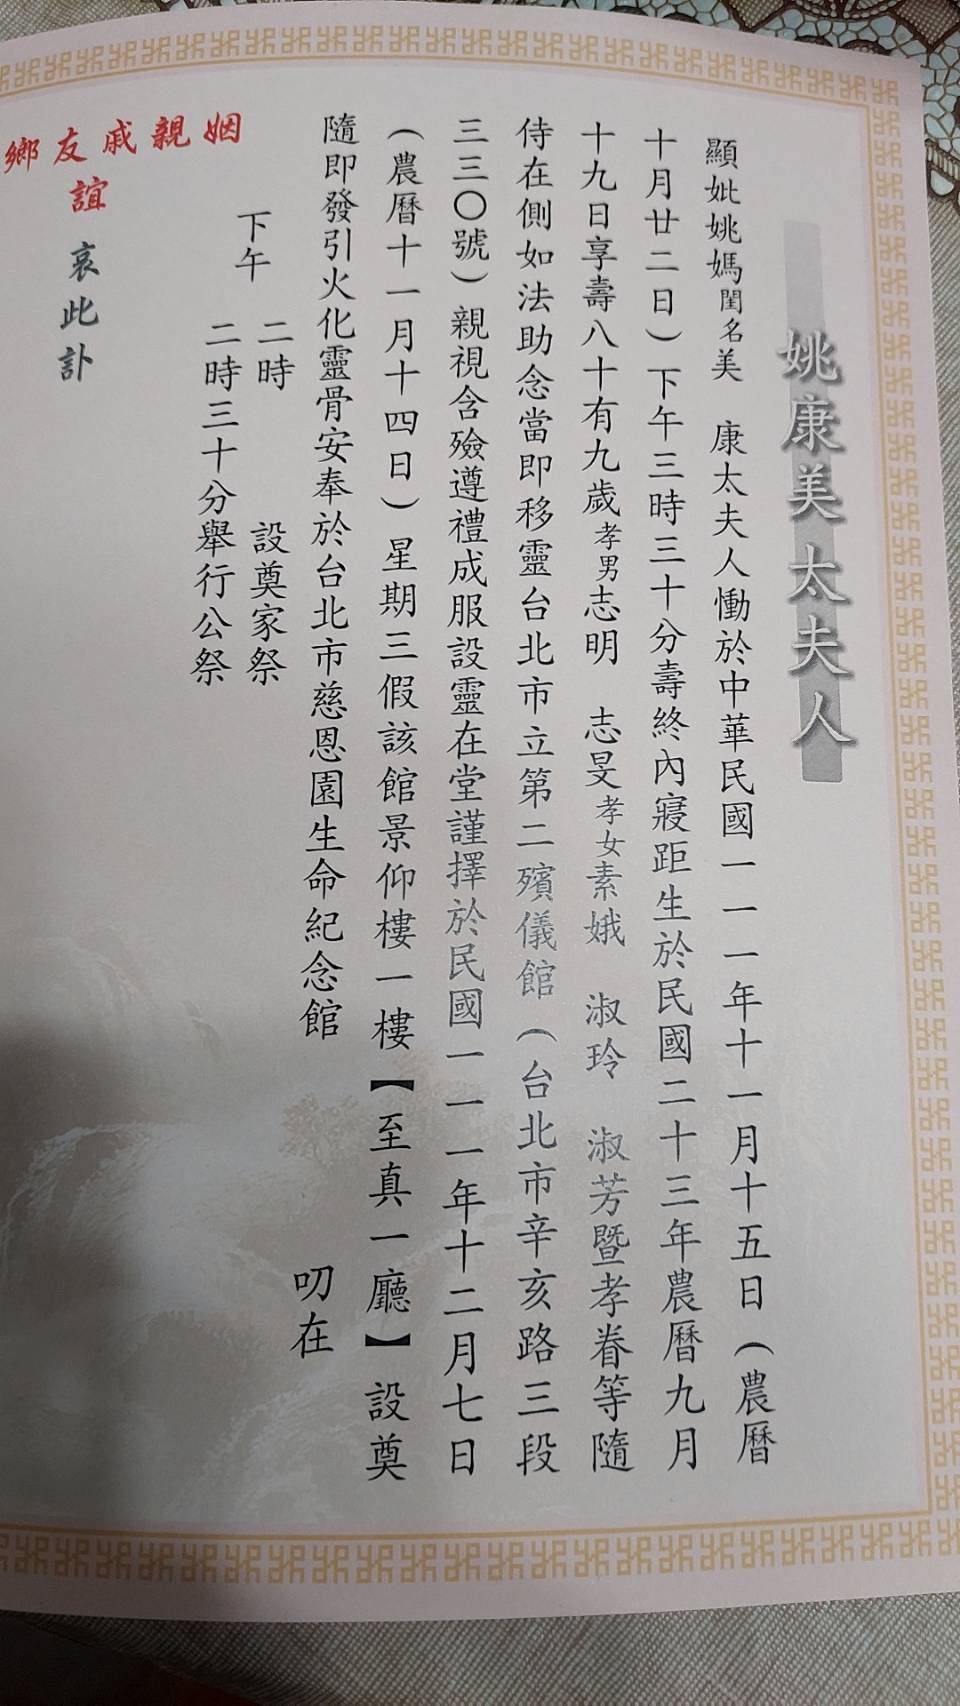 姚康美太夫人
顯妣姚媽閨名美　康太夫人慟於中華民國一一一年十一月十五日（農曆
十月廿二日）下午三時三十分壽終內寢距生於民國二十三年農曆九月
十九日享壽八十有九歲孝男志明　志旻孝女素娥　淑玲　淑芳暨孝眷等隨
侍在側如法助念當即移靈台北市立第二殯儀館（台北市辛亥路三段
三三〇號）親視含殮遵禮成服設靈在堂謹擇於民國一一一年十二月七日
（農曆十一月十四日）星期三假該館景仰樓一樓【至真一廳】設奠
隨即發引火化靈骨安奉於台北市慈恩園生命紀念館　叨在
下午　二時　設奠家祭
二時三十分舉行公祭
姻親戚友鄉
誼　哀此訃